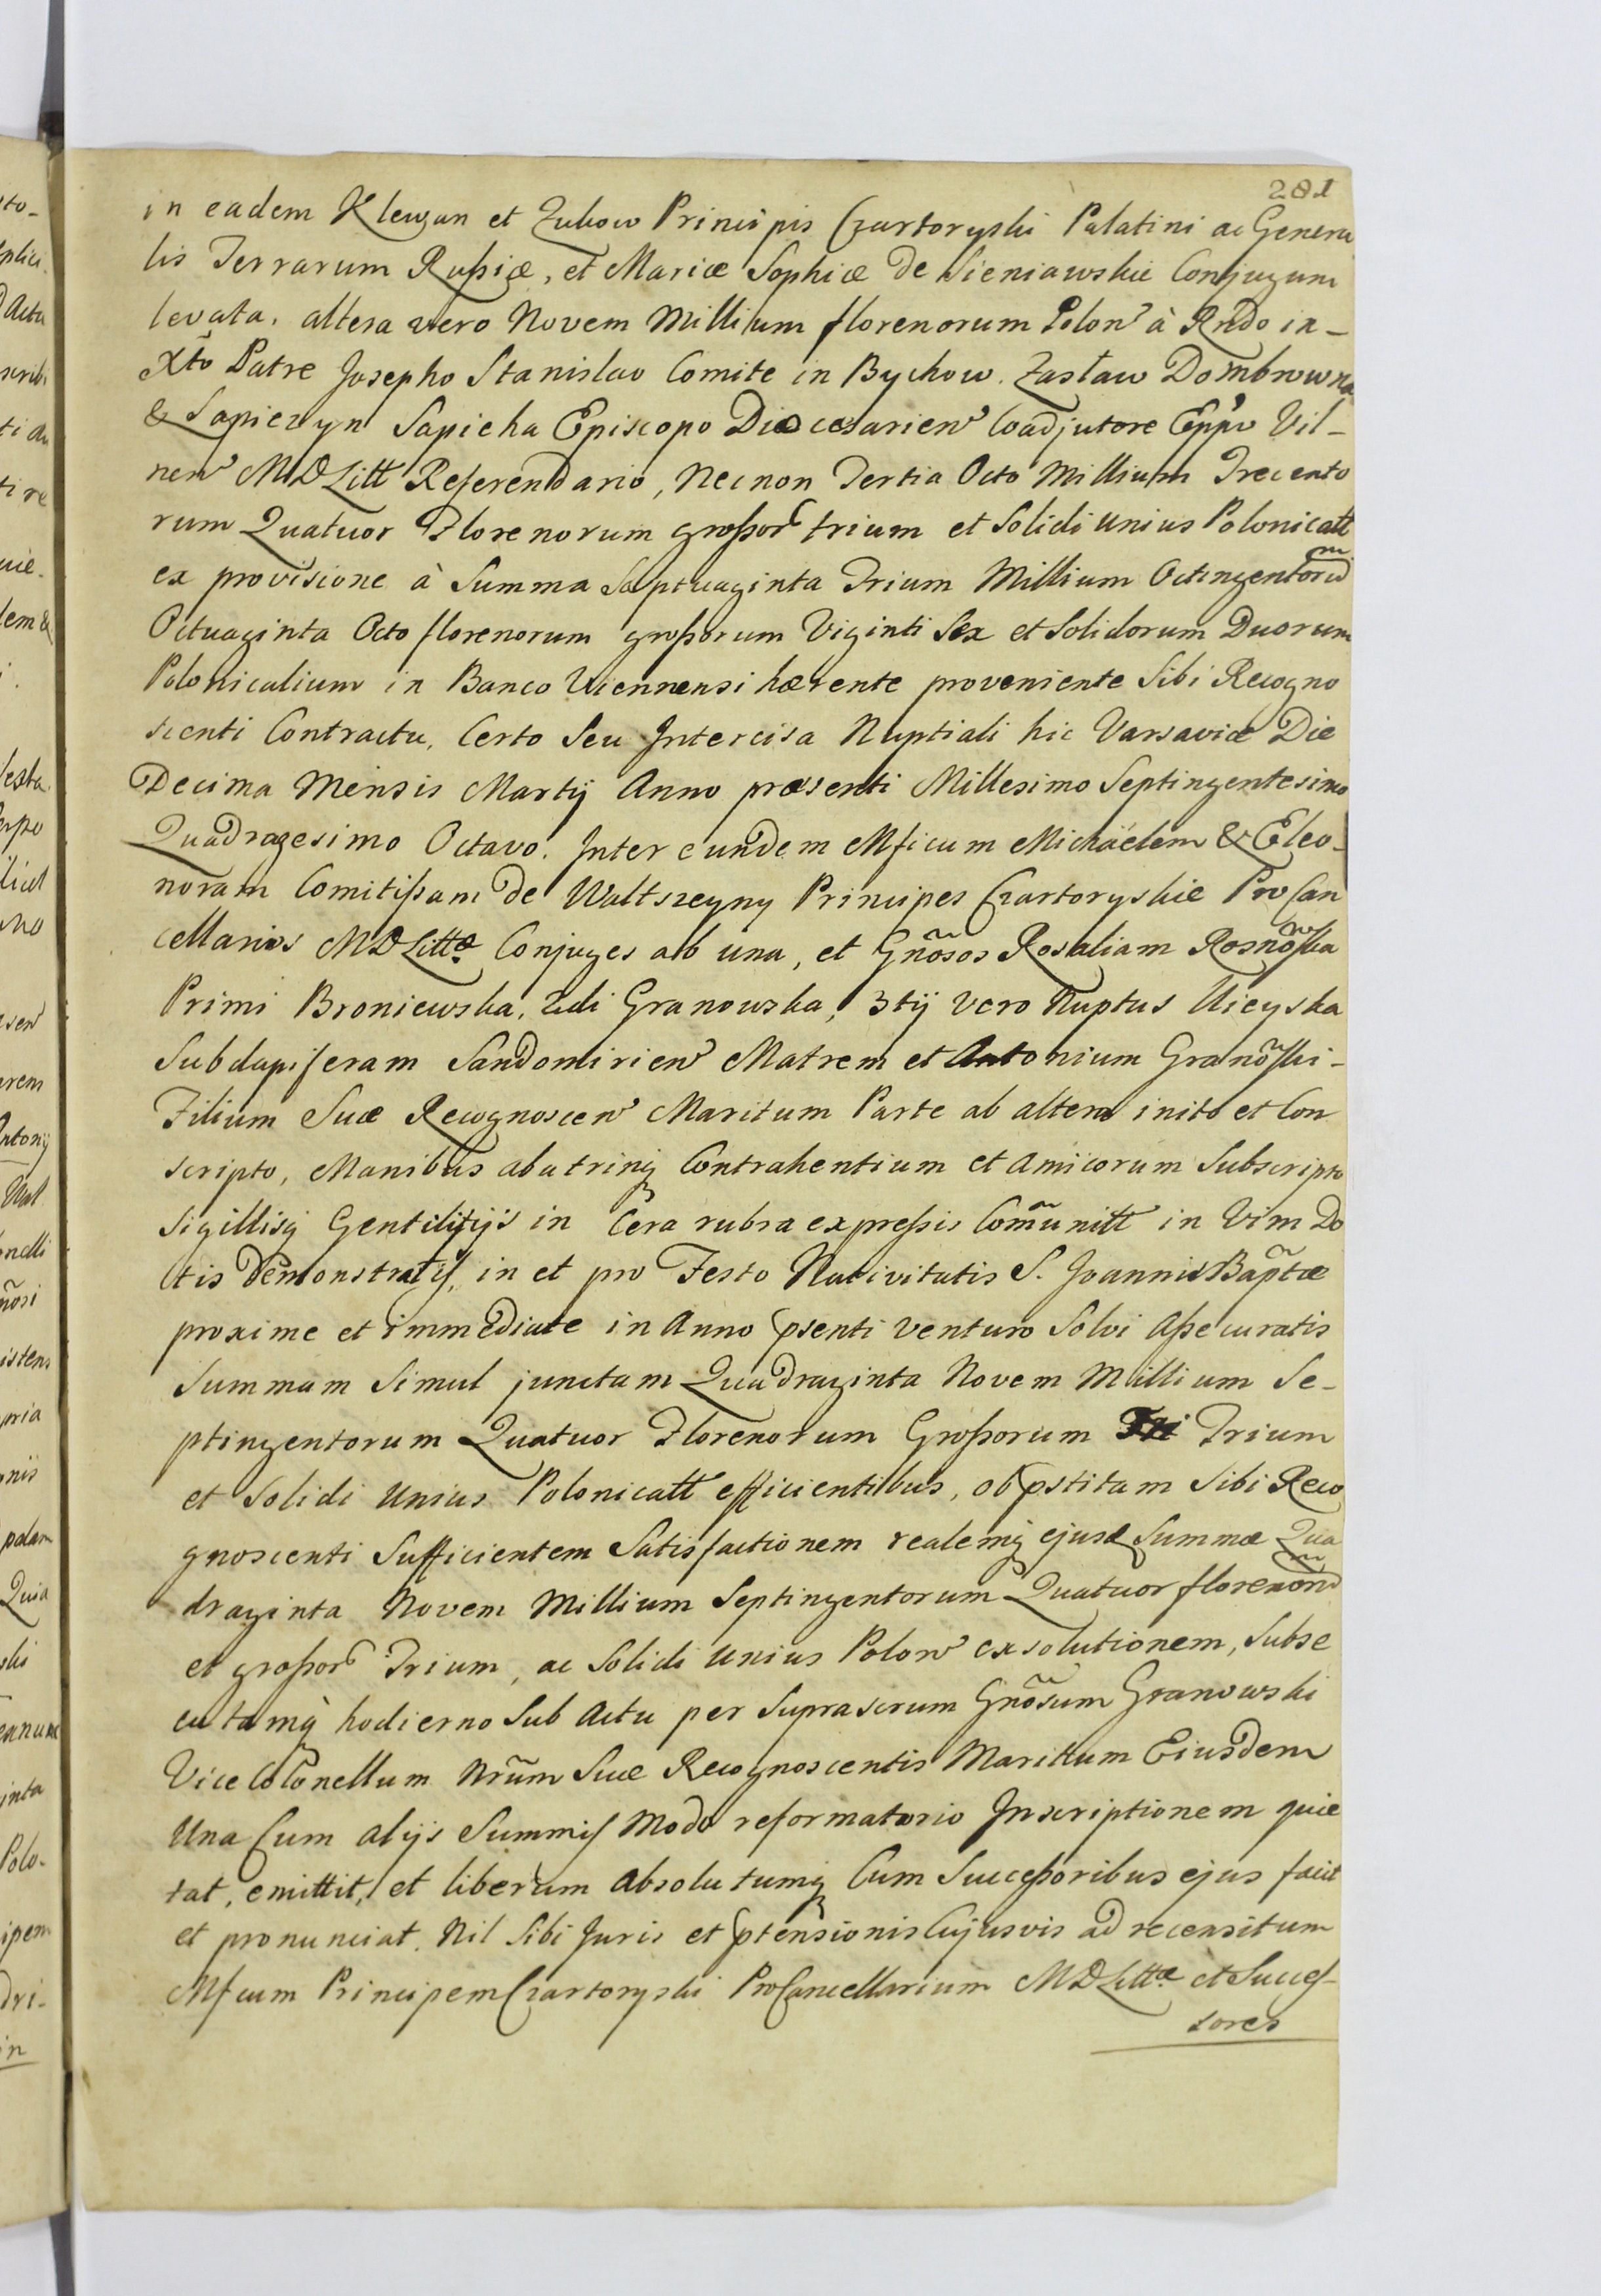 281
in eadem Klewan et Zukow Principis Czartoryski Palatini ac Genera
lis Terrarum Rußiæ, et Mariæ Sophiæ de Sieniawskie Conjugum
levata, altera vero Novem Millium florenorum Polon à Rndo in-
Xto Patre Josepho Stanislao Comite in Bychow. Zasław Dombrowna
& Sapiezyn Sapieha Episcopo Diocesarien Coadjutore Eppo Vil-
nen MDLitt Referendario, Necnon Tertia Octo Millium Trecento
rum Quatuor Florenorum großor trium et Solidi unius Polonicall
ex provisione à Summa Septuaginta Trium Millium Octingentorũ
Octuaginta Octo florenorum großorum Viginti Sex et Solidorum Duorum
Polonicalium in Banco Viennensi hærente proveniente Sibi Recogno
scenti Contractu, Certo Seu Intercisa Nuptiali hic Varsaviæ Die
Decima Mensis Martij Anno præsenti Millesimo Septingentesimo
Quadragesimo Octavo. Inter eundem Mficum Michäelem & Eleo-
noram Comitißam de Waltszeyny Principes Czartoryskie ProCan
cellarios MDLittæ Conjuges ab una, et Gnõsos Rosaliam Rosnõska
Primi Broniewska, 2di Granowska, 3tij vero Nuptus Uieyska
Subdapiferam Sandomirien Matrem et Antonium Granõski-
Filium Suæ Recognoscen Maritum Parte ab altera inito et Con
scripto, Manibus abutrinq Contrahentium et Amicorum Subscripto
Sigillisq Gentilitijs in Cera rubra expreßis Comũnitt in Vim Do
tis Demonstratis, in et pro Festo Nativitatis S. Joannis Bapt̃æ
proxime et immediate in Anno psenti venturo Solvi Aßecuratis
Summam Simul junctam Quadraginta Novem Millium Se-
ptingentorum Quatuor Florenorum Großorum Tri Trium
et Solidi Unius Polonicall efficientibus, ob pstitam Sibi Reco
gnoscenti Sufficientem Satisfactionem realemq ejusd Summæ Qua
draginta Novem Millium Septingentorum Quatuor florenorũ
et großor Trium, ac Solidi Unius Polon exsolutionem, Subse
cutamq hodierno Sub Actu per Suprascrum Gnõsum Granowski
ViceColonellum Nrũm Suæ Recognoscentis Marittum Eiusdem
Una Cum alijs Summis Modo reformatorio Inscriptionem quie
tat, emittit, et liberum Absolutumq Cum Succeßoribus ejus facit
et pronunciat. Nil Sibi Juris et ptensionis Cujusvis ad recensitum
Mfcum Principem Czartoryski ProCancellarium MDLittæ et Succes-
sores